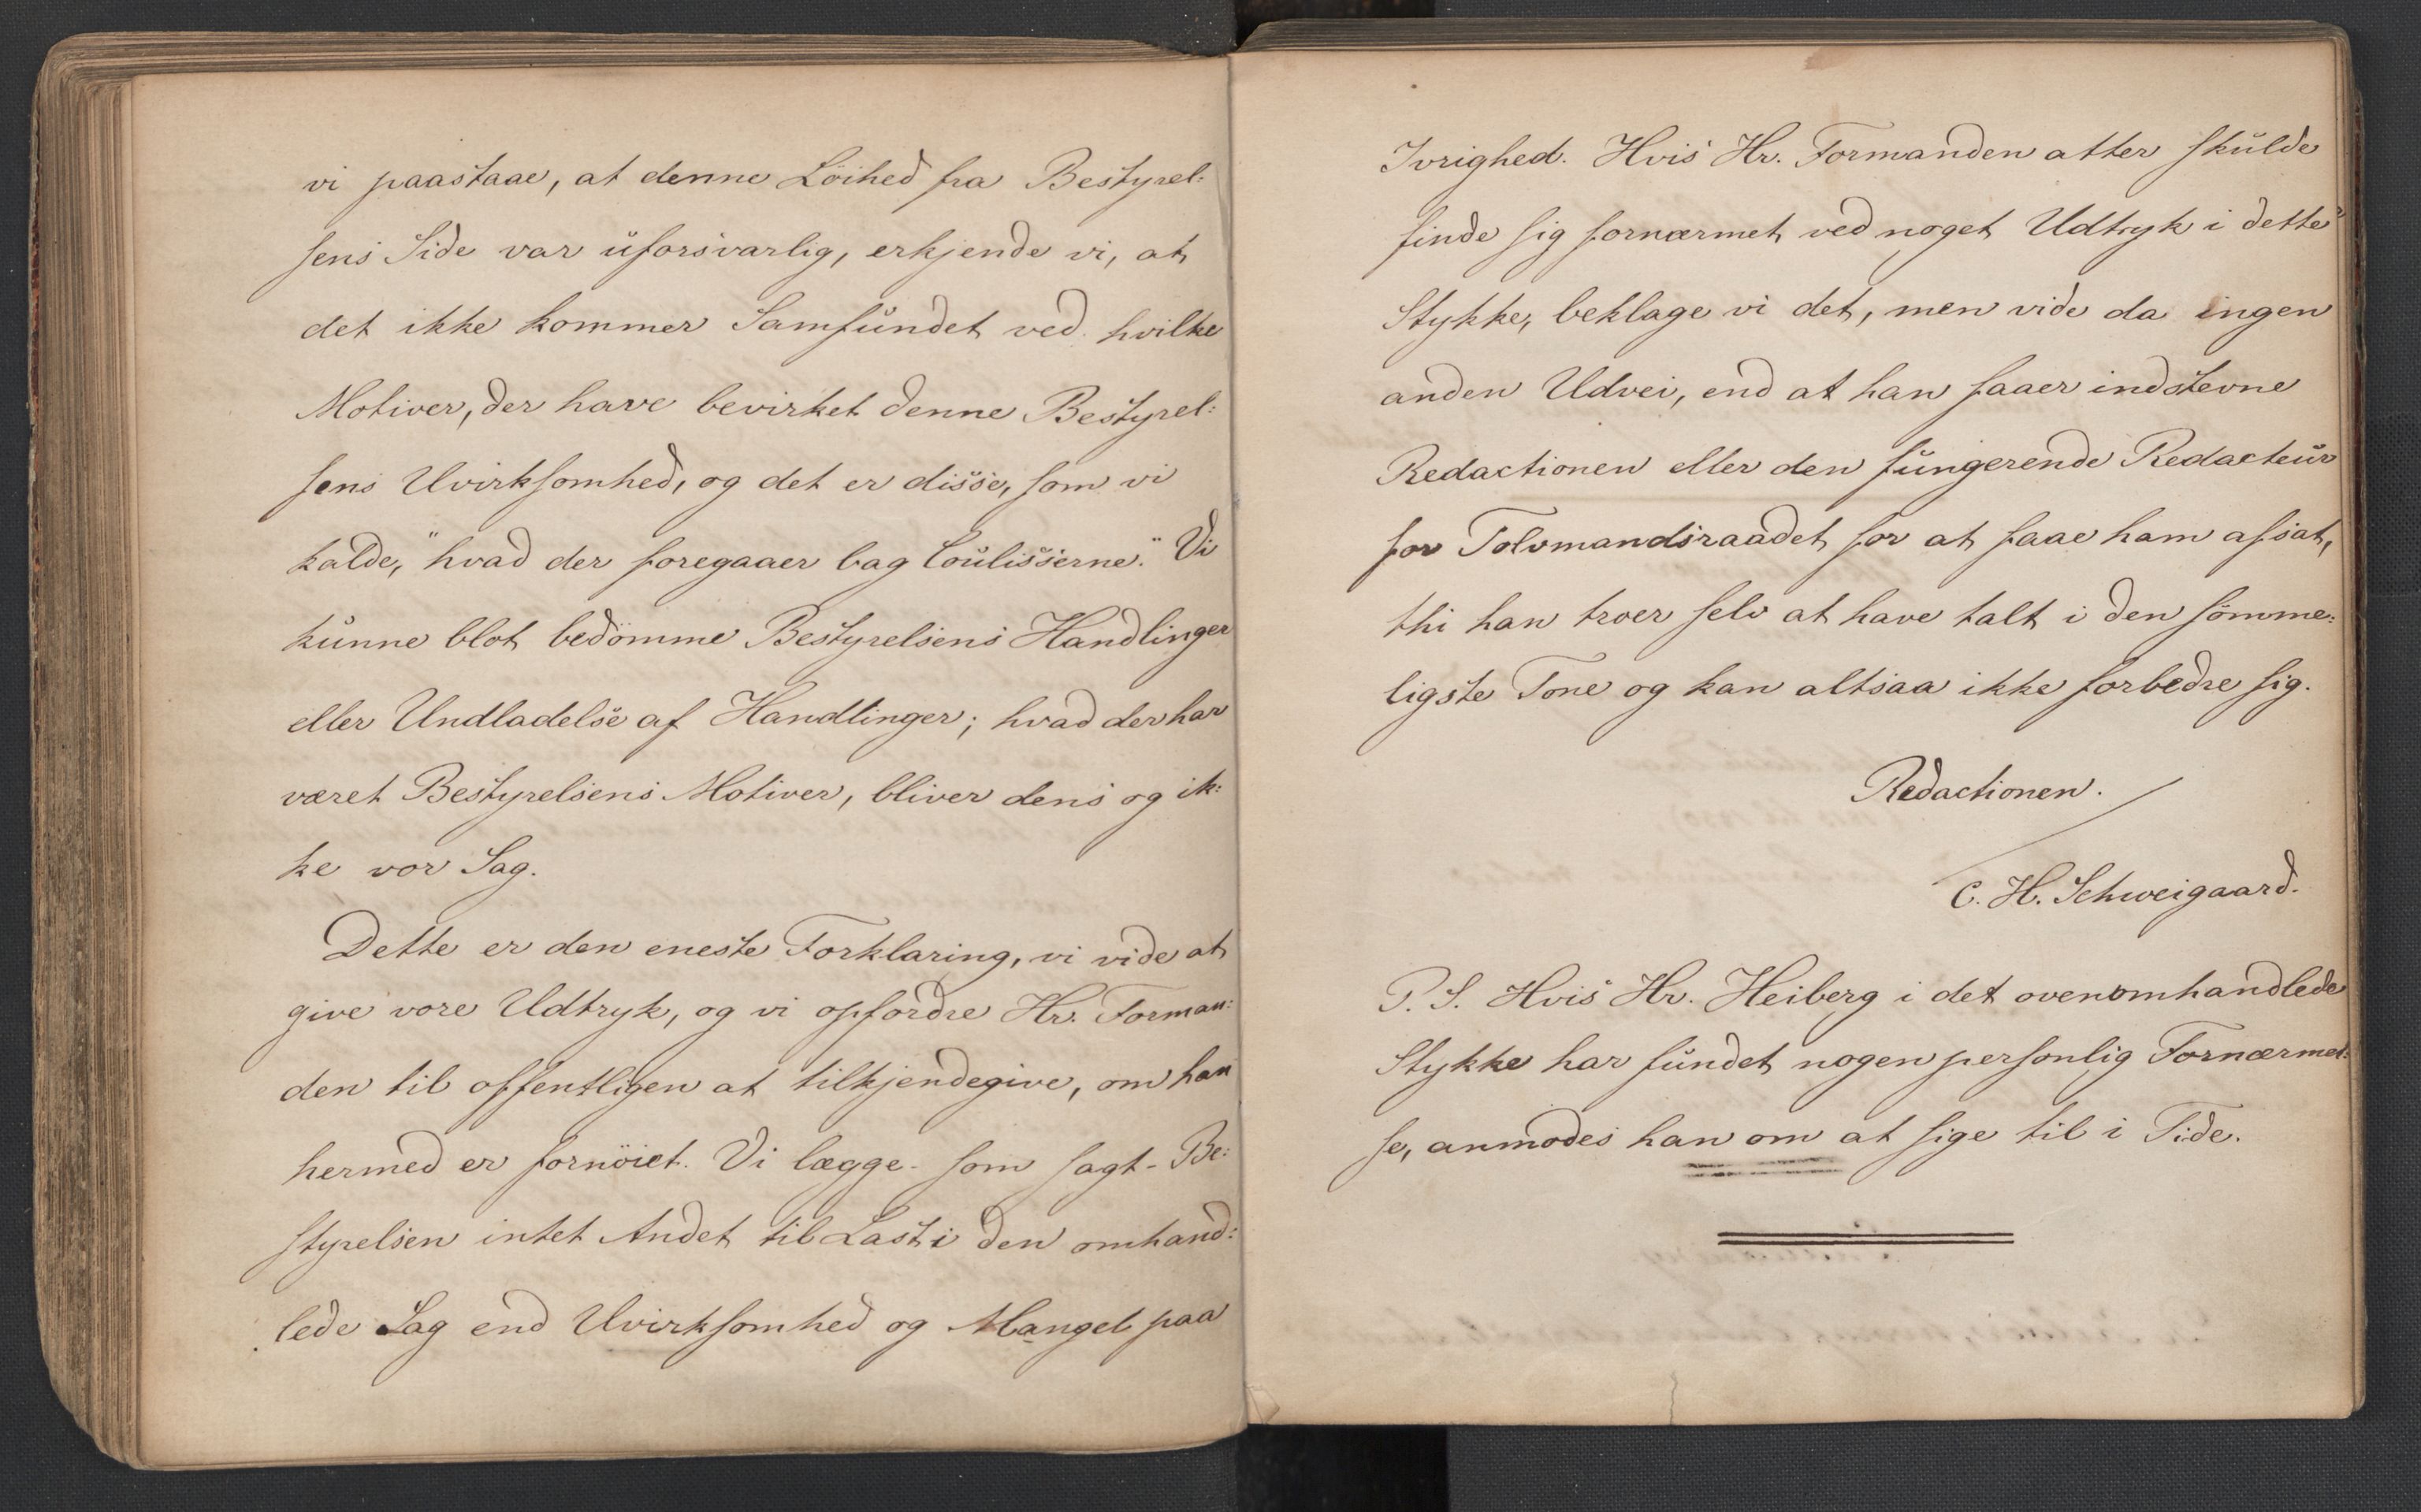 vi paastaae, at denne Löihed fra Bestyrel:
sens Side var uforsvarlig, erkjende vi, at
det ikke kommer Samfundet ved hvilke
Motiver, der have bevirket denne Bestyrel:
sens Uvirksomhed, og det er disse, som vi
kalde, "hvad der foregaaer bag Coulisserne." Vi
kunne blot bedömme Bestyrelsens Handlinger
eller Undladelse af Handlinger; hvad der har
været Bestyrelsens Motiver, bliver dens og ik:
ke vor Sag.
Dette er den eneste Forklaring, vi vide at
give vore Udtryk, og vi opfordre Hr. Forman:
den til offentligen at tilkjendegive, om han
hermed er fornöiet. Vi lægge - som sagt - Be:
styrelsen intet Andet til Last i den omhand:
lede Sag end Uvirksomhed og Mangel paa
Ivrighed. Hvis Hr. Formanden atter skulde
finde sig fornærmet ved noget Udtryk i dette
Stykke, beklage vi det, men vide da ingen
anden Udvei, end at han faaer indstevne
Redactionen eller den fungerende Redacteur
for Tolvmandsraadet for at faae ham afsat,
thi han troer selv at have talt i den sömme:
ligste Tone og kan altsaa ikke forbedre sig.
Redactionen.
C. H. Schweigaard.
P. S. Hvis Hr. Heiberg i det ovenomhandlede
Stykke har fundet nogen personlig Fornærmel:
se, anmodes han om at sige til i Tide.